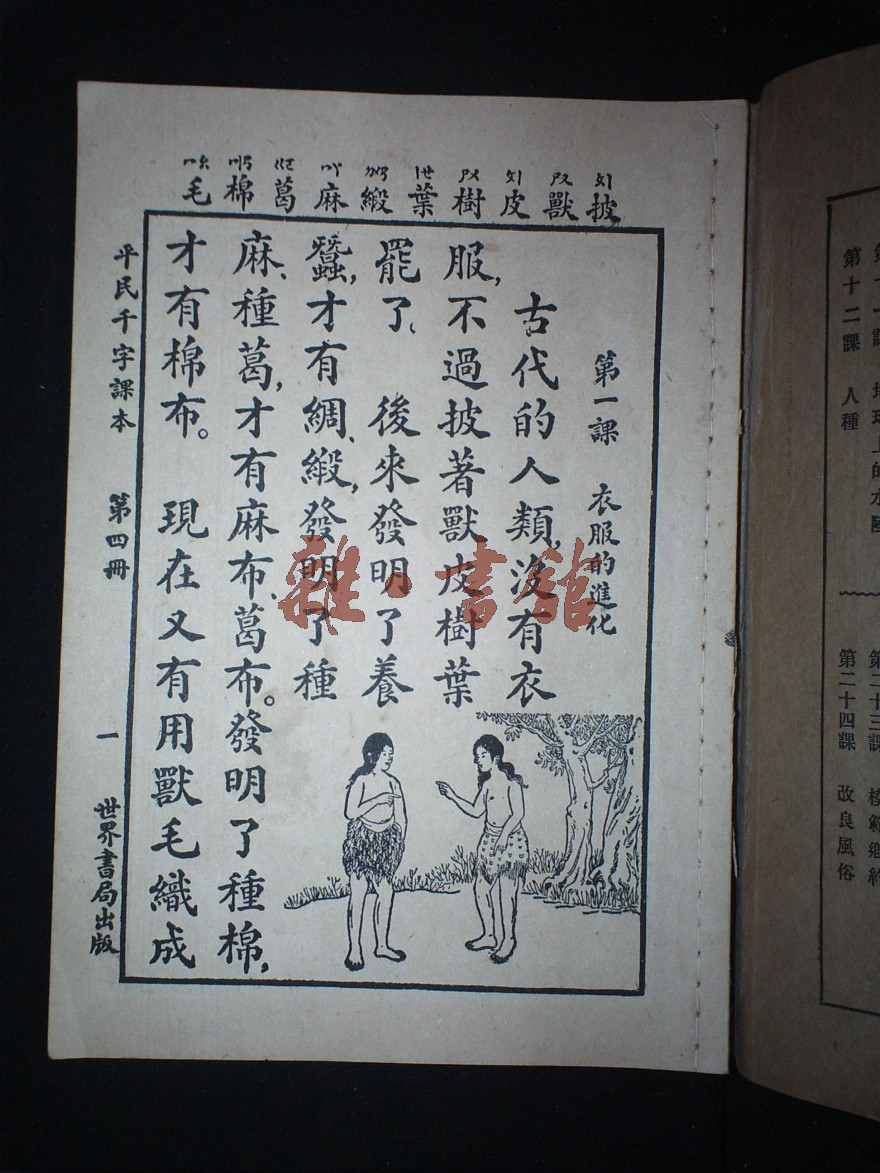 披獸皮樹葉緞麻葛棉毛
第一課　衣服的進化
古代的人類，沒有衣
服，不過披著獸皮樹葉
罷了、後來發明了養
蠶，才有綢、緞，發明了種
麻、種葛，才有麻布、葛布。發明了種棉，
才有棉布。現在又有用獸毛織成
平民千字課本　第四冊　一　世界書局出版
雜·書館
第十二課　人種
第二十四課　改良風俗